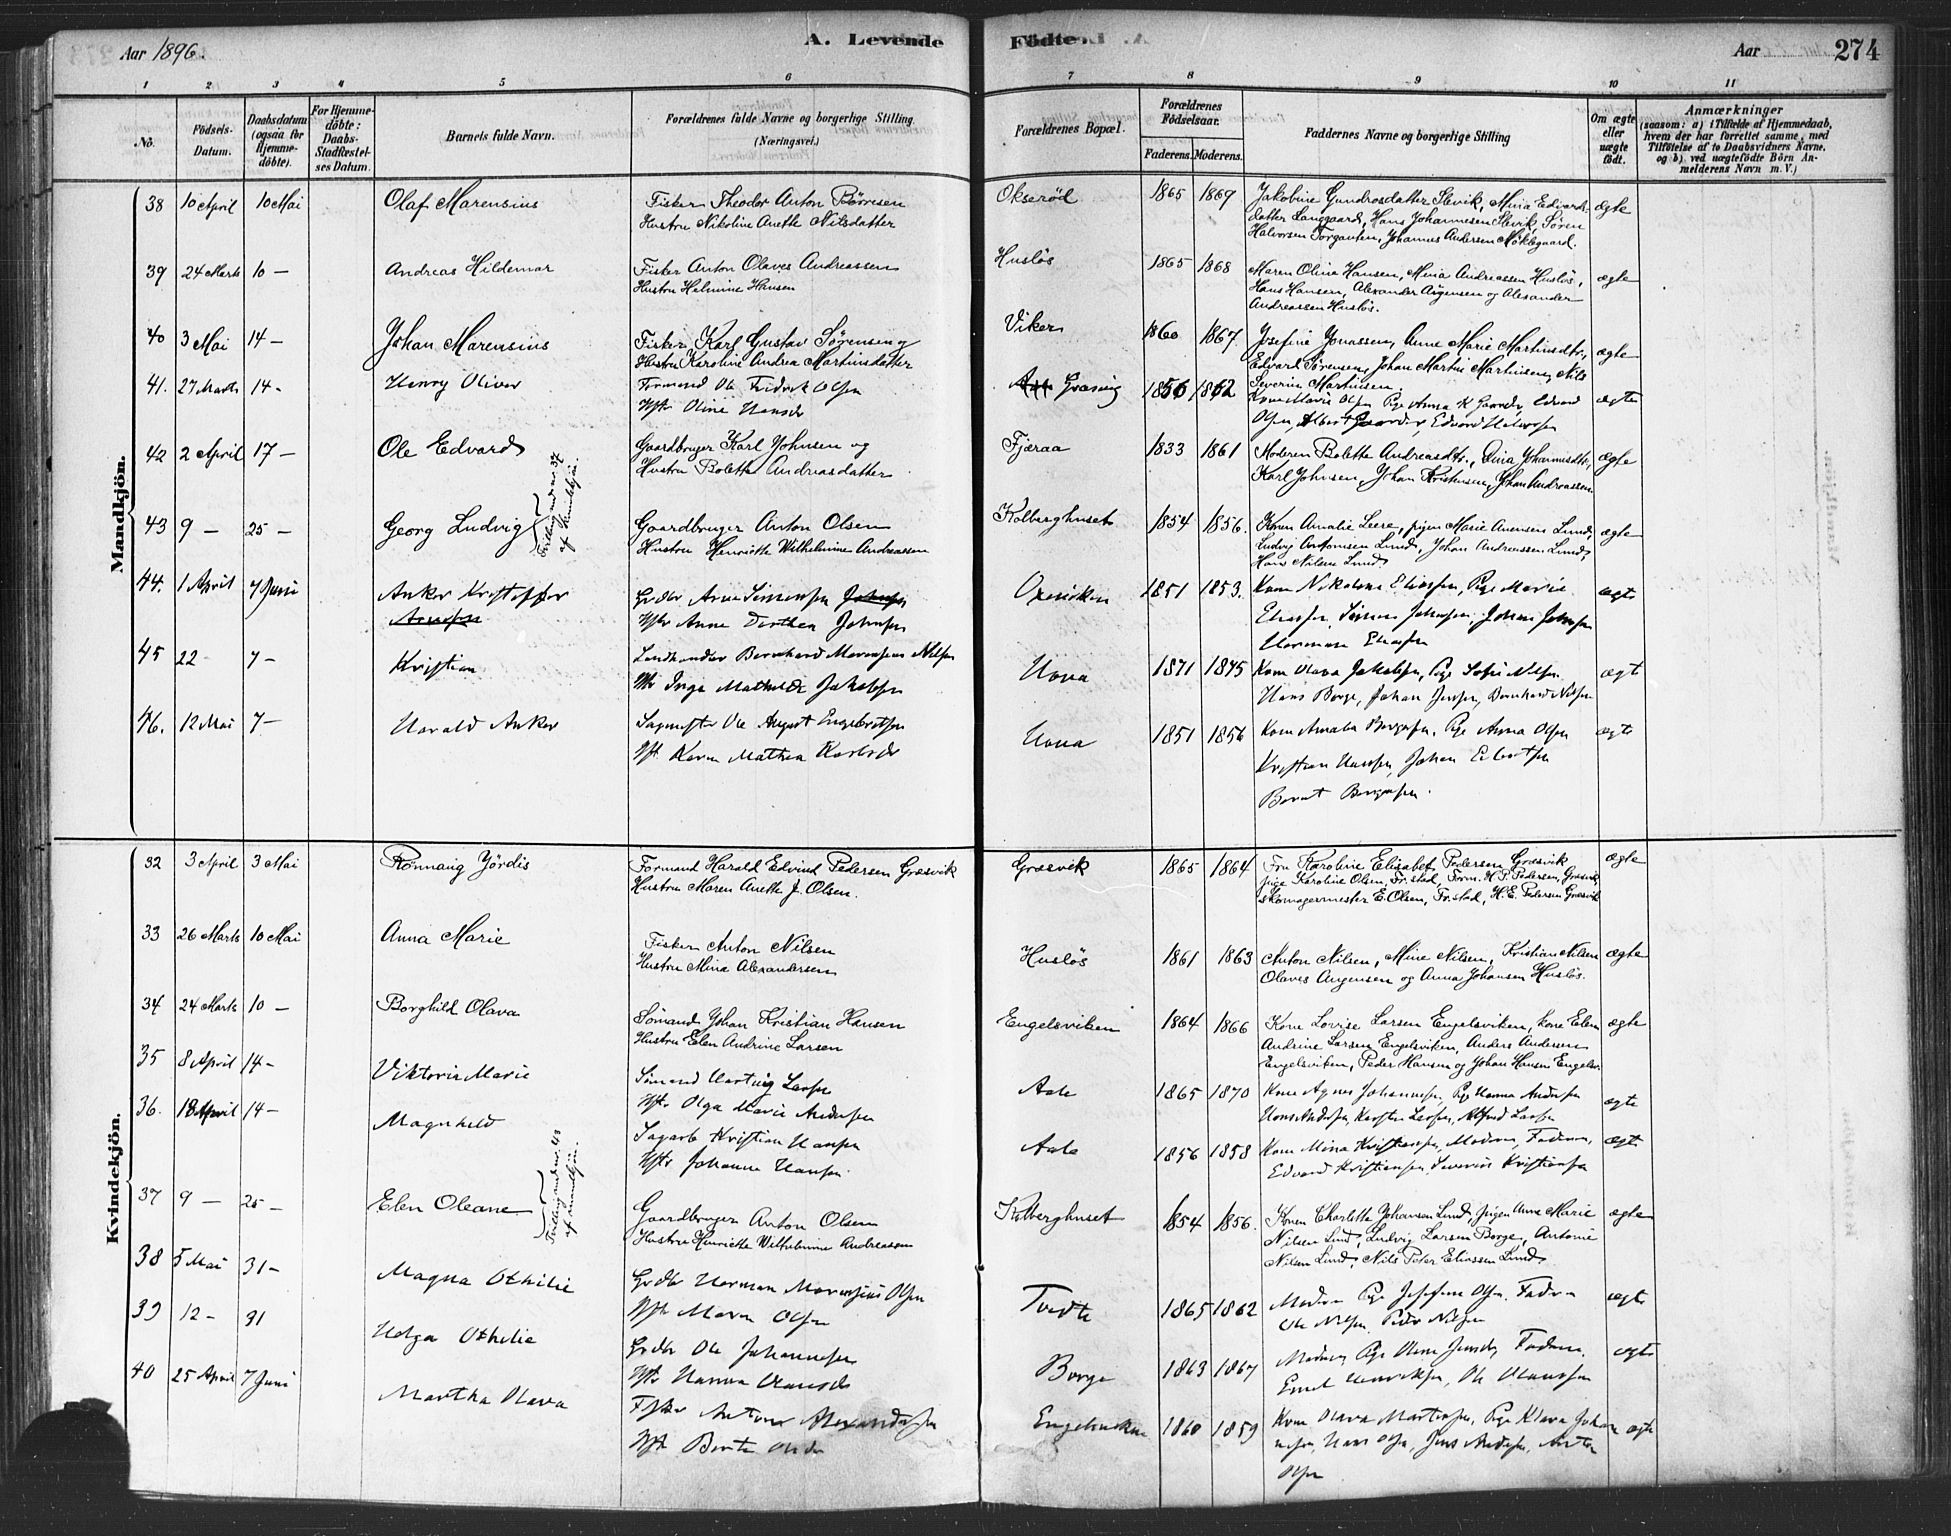 Aar 1896.
A. Levende
Födte.
Aar
274
1 2 3 4 5 6 7 8 9 10 11
No.
Födsels-
Datum.
Daabsdatum
(ogsaa for
Hjemme-
döbte).
For Hjemme-
döbte:
Daabs-
Stadfæstel-
ses Datum.
Barnets fulde Navn.
Forældrenes fulde Navne og borgerlige Stilling.
(Næringsvei.)
Forældrenes Bopæl.
Forældrenes
Födselsaar.
Faderens. Moderens.
Faddernes Navne og borgerlige Stilling
Om ægte
eller
uægte
födt.
Anmærkninger
(saasom: a) i Tilfælde af Hjemmedaab,
hvem der har forrettet samme, med
Tilföielse af to Daabsvidners Navne,
og b) ved uægtefödte Börn An-
melderens Navn m. V.)
Mandkjön.
38 10 April 10 Mai Olaf Marensius Fisker Theodor Anton Börresen Okseröd 1865 1869 Jakobine Gundrosdatter Slevik, Mina Edvards- ægte
Hustru Nikoline Anette Nilsdatter datter Langgaard, Hans Johannesen Slevik, Sören
Halvorsen Torgauten, Johannes Andersen Möklegaard.
39 24 Marts 10 — Andreas Hildemar Fisker Anton Olaves Andreassen Huslös 1865 1868 Maren Olina Hansen, Mina Andreassen Huslös, ægte
Hustru Helmine Hansen Hans Hansen, Alexander Augensen og Alexander
Andreassen Huslös.
40 3 Mai 14 — Johan Marensius Fisker Karl Gustav Sörensen og Viker 1860 1867 Josefine Jonassen, Anne Marie Martinsdtr., ægte
Hustru Karoline Andrea Martinsdatter Edvard Sörensen, Johan Martin Martinsen, Nils
Severin Martinsen.
41. 27 Marts 14 - Henry Oliver Formand Ole Fredrik Olsen 1856 1862 Kone Marie Olsen Pige Anna K ægte
Hstr Oline Hansdr Olsen, Albert
42 2 April 17 — Ole Edvard Gaardbruger Karl Johnsen og Fjæraa 1833 1861 Moderen Bolette Andreasdtr., Lina Johannesdtr., ægte
Hustru Bolette Andreasdatter Karl Johnsen, Johan Kristensen, Johan Andreassen
43 9 — 25 — Georg Ludvig Gaardbruger Anton Olsen Kolberghuset 1854 1856. Konen Amalie Leere, pigen Marie Lund, ægte
Tvilling med no. 37
af Kvindekjön.
Hustru Henriette Wilhelmine Andreassen Ludvig Antonisen Lund, Johan Andreassen Lund,
Hans Nilsen Lund
44. 1 April 7 Juni Anker Kristoffer Grdbr Arne Simensen 1851 1853. Kone Nikoline Eliassen, Pige Marie ægte
Hstr Anne Dorthea Johnsen Eliassen, Simen Johnsen, Johan Johnsen
Herman Eliassen
45 22 7 — Kristian Landhandler Bernhard Marensius Nilsen Hona 1871 1875 Kone Olava Jakobsen, Pige Sofie Nilsen ægte
Hstr Inga Mathilde Jakobsen Hans Borge, Johan Jensen, Bernhard Nilsen
46. 12 Mai 7 — Harald Anker Sagmester Ole August Engebretsen Hona 1851 1856 Kone Amalie Borgersen, Pige Anna Olsen ægte
Hst Karen Mathea Karlsdr Kristian Hansen, Johan
Bernt Borgersen.
Kvindekjön.
32 3 April 3 Mai Rönnaug Jördis Formand Harald Edvind Pedersen Græsvik Græsvik 1865 1864 Fru Karoline Elisabet Pedersen Græsvik ægte
Hustru Maren Anette J. Olsen. pige Karoline Olsen, Fr.stad, Form. H. P. Pedersen, Græsvik
skomagermester E. Olsen, Fr.stad, H. E. Pedersen Græsvik
33 26 Marts 10 Mai Anna Marie Fisker Anton Nilsen Huslös 1861 1863 Anton Nilsen, Mine Nilsen, Kristian Nilsen ægte
Hustru Mina Alexandersen Olaves Augensen og Anna Johansen Huslös.
34 24 Marts 10 — Borghild Olava Sömand Johan Kristian Hansen Engelsviken 1864 1866 Kone Lovise Larsen Engelsviken, kone Elen ægte
Hustru Elen Andrine Larsen Andrine Larsen Engelsviken, Anders Andersen
Engelsviken, Peder Hansen og Johan Hansen Engelsv.
35 8 April 14 — Viktoria Marie Sömand Hartvig Larsen Aale 1865 1870 Kone Agnes Johannesen, Pige Hanna Andersen ægte
Hstr Olga Marie Andersen Hans Andersen, Karsten Larsen, Alfred Larsen
36. 18 April 14 — Magnhild Sagarb Kristian Hansen Aale 1856 1858 Kone Mina Kristiansen, Moderen, Faderen, ægte
Hstr Johanne Hansen. Edvard Kristiansen, Severin Kristiansen
37 9 — 25 — Elen Oleane Gaardbruger Anton Olsen Kolberghuset 1854 1856. Konen Charlotte Johansen Lund, pigen Anne Marie ægte
Tvilling med no. 43
af mandkjön.
Hustru Henriette Wilhelmine Andreassen Nilsen Lund, Ludvig Larsen Borge, Antonie
Nilsen Lund, Nils Peter Eliassen Lund
38 5 Mai 31 — Magna Othilie Grdbr Herman Marensius Olsen Tvedte 1865 1862 Moderen Pige Josefine Olsen, Faderen ægte
Hstr Maren Olsen Ole Nilsen, Peder Nilsen
39 12 - 31 Helga Othilie Grdbr Ole Johannesen Borge 1863 1867 Moderen, Pige Jensdr, Faderen, ægte
Hstr Hanna Hansdr Emil Henriksen, Ole
40 25 April 7 Juni Martha Olava Fisker Anton Alexandersen Engelsviken 1860 1859 Kone Olava Martinsen, Pige Klara Johan ægte
Hstr Berte nesen, Hans Olsen, Jens Andersen, Anton
Olsen